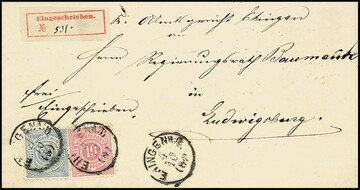 Eingeschrieben.
№ 531.
K. Amtsgericht Ehingen
an
Herrn Regierungsrath Baumeister
frei
Eingeschrieben
in
Ludwigsburg.
EHINGEN A/D
10
EHINGEN A/D